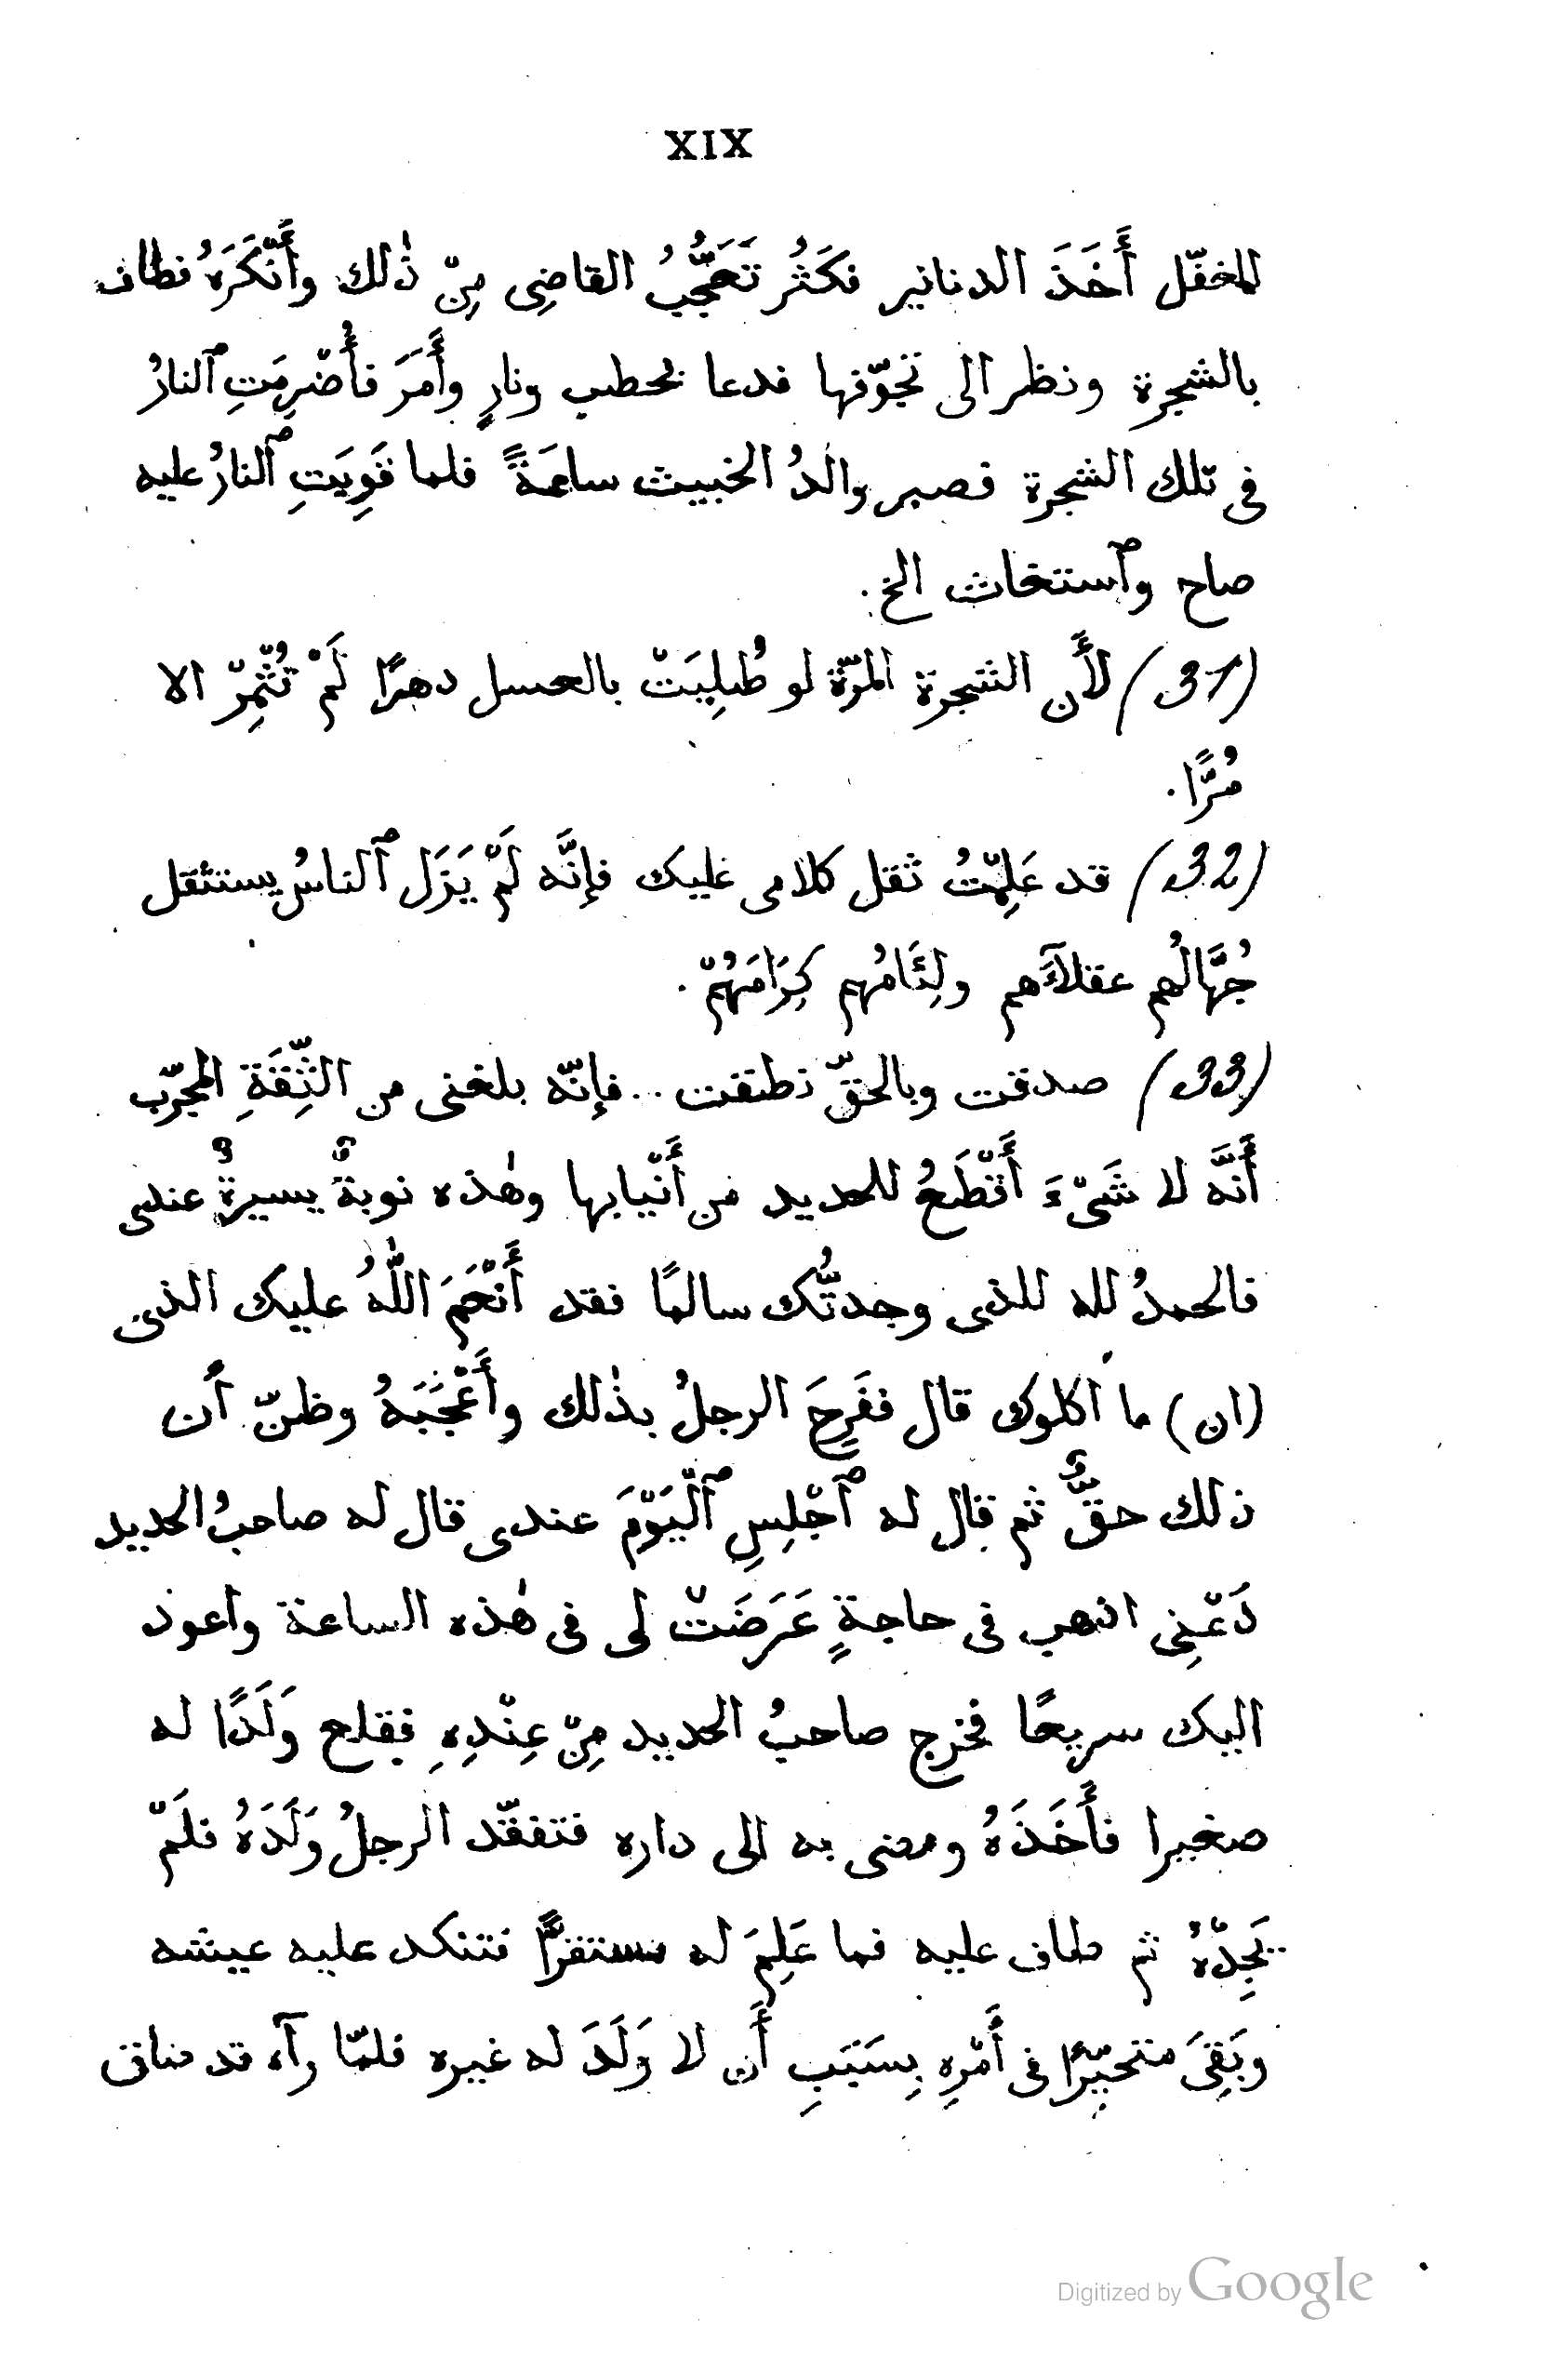 XIX
المغفّل أَخَذَ الدنانير فكَثُر تَعَجُّبُ القاضِى مِنْ ذٰلك وأَنْكَرَهُ فطاف
بالشجرة ونظر الى تجوّفها فدعا بحطب ونارٍ وأَمَرَ فأُضْرِمَتِ ٱلنارُ
فى تلك الشجرة فصبر والدُ الخبيث ساعَةً فلما قَوِيَتِ ٱلنارُ عليه
صاح وٱستغاث الخ.
(31) لأَن الشجرة المرّة لو طُلِيَتْ بالعسل دهرًا لَمْ تُثْمِرْ الا
مُرًّا.
(32) قد عَلِمْتُ ثقل كلامى عليك فإنَّه لَمْ يَزَل ٱلناسُ يستثقل
جُهَّالُهم عقلآءَهم ولِئَامُهم كِرَامَهُمْ.
(33) صدقت وبالحقّ نطقت .. فإنّه بلغنى من الثِّقَةِ المجرّب
أَنَّه لا شَىْءَ أَقْطَعُ للحديد من أَنْيابها وهٰذه نوبةٌ يسيرةٌ عندى
فالحمدُ لله للذى وجدتُّك سالمًا فقد أَنْعَمَ اللّٰهُ عليك الذى
(ان) ما أكلوك قال ففَرِحَ الرجلُ بذٰلك وأَعْجَبَهُ وظنّ أن
ذلك حقٌّ ثم قال له ٱجْلِسِ ٱلْيَوْمَ عندى قال له صاحبُ الحديد
دَعْنِى اذهب فى حاجةٍ عَرَضَتْ لى فى هٰذه الساعة واعود
اليك سريعًا فخرج صاحبُ الحديد مِنْ عِنْدِهِ فقلع وَلَدًا له
صغيرا فأَخَذَهُ ومضى به الى داره فتفقّد الرجلُ وَلَدَهُ فلَمْ
يَجِدْهُ ثم طاف عليه فما عَلِمَ له مستقرًّا فتنكد عليه عيشه
وبَقِىَ متحيِّرًا فى أَمْرِهِ بِسَبَبِ أَن لا وَلَدَ له غيره فلمّا رآه قد ضاق
Digitized by Google